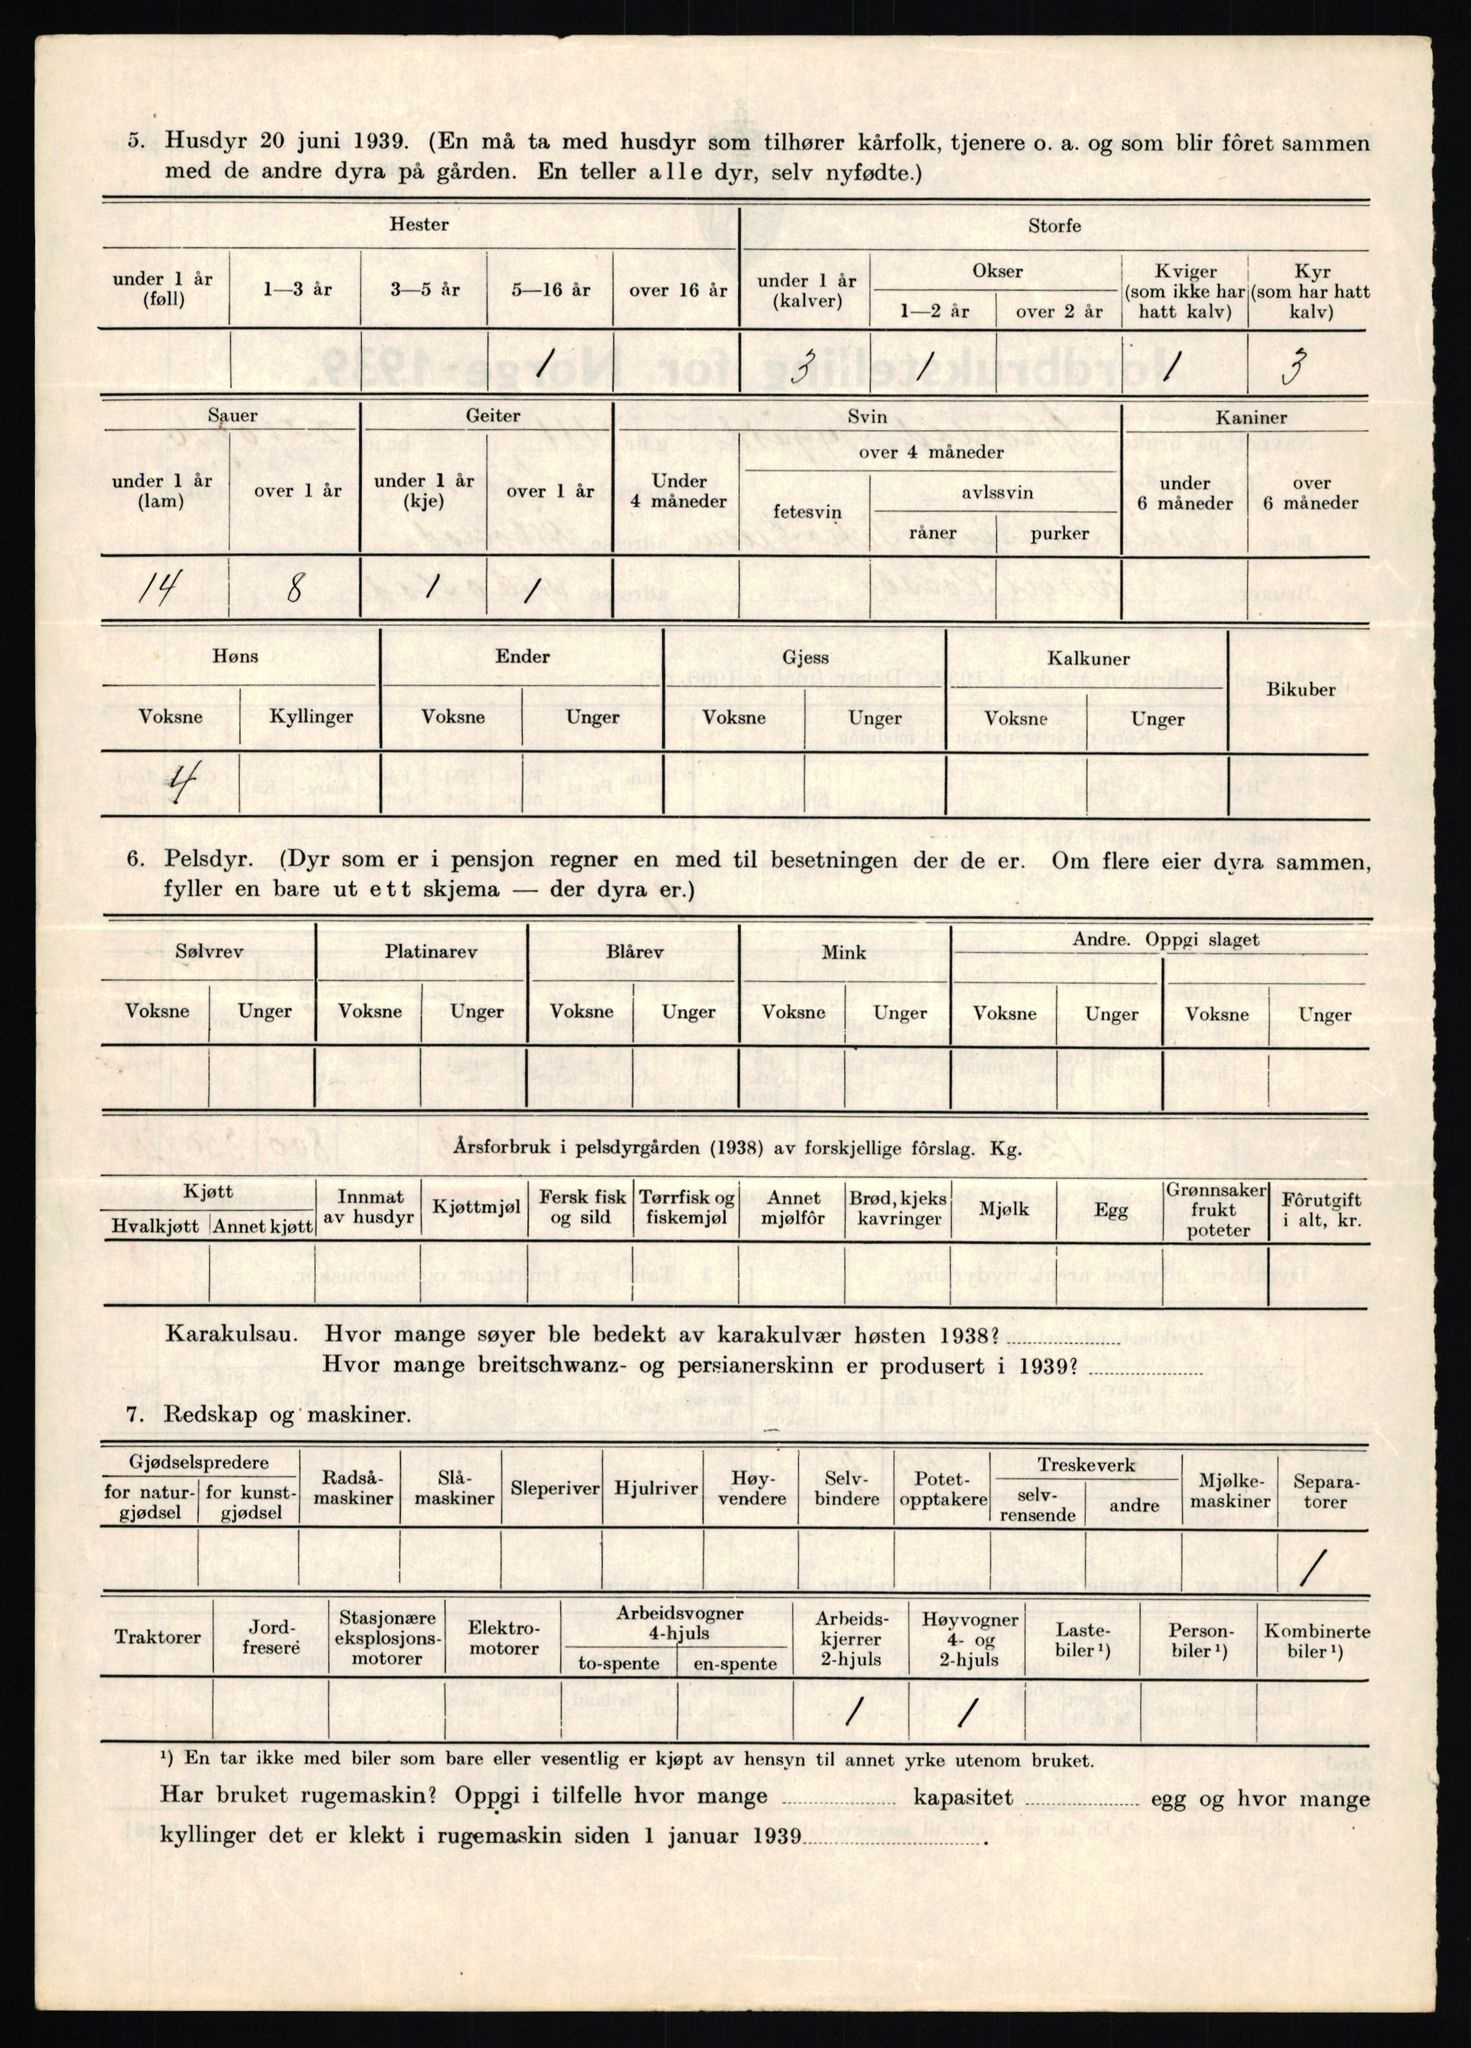 5. Husdyr 20 juni 1939. (En må ta med husdyr som tilhører kårfolk, tjenere o. a. og som blir fôret sammen
med de andre dyra på gården. En teller alle dyr, selv nyfødte.)
Hester Storfe
under 1 år (føll) 1—3 år 3—5 år 5—16 år over 16 år under 1 år (kalver) Okser Kviger (som ikke har hatt kalv) Kyr (som har hatt kalv)
1—2 år over 2 år
1 3 1 1 3
Sauer Geiter Svin Kaniner
under 1 år (lam) over 1 år under 1 år (kje) over 1 år Under 4 måneder over 4 måneder under 6 måneder over 6 måneder
fetesvin avlssvin
råner purker
14 8 1 1
Høns Ender Gjess Kalkuner Bikuber
Voksne Kyllinger Voksne Unger Voksne Unger Voksne Unger
4
6. Pelsdyr. (Dyr som er i pensjon regner en med til besetningen der de er. Om flere eier dyra sammen,
fyller en bare ut ett skjema — der dyra er.)
Sølvrev Platinarev Blårev Mink Andre. Oppgi slaget
Voksne Unger Voksne Unger Voksne Unger Voksne Unger Voksne Unger Voksne Unger
Årsforbruk i pelsdyrgården (1938) av forskjellige fôrslag. Kg.
Kjøtt Innmat av husdyr Kjøttmjøl Fersk fisk og sild Tørrfisk og fiskemjøl Annet mjølfôr Brød, kjeks kavringer Mjølk Egg Grønnsaker frukt poteter Fôrutgift i alt, kr.
Hvalkjøtt Annet kjøtt
Karakulsau. Hvor mange søyer ble bedekt av karakulvær høsten 1938?
Hvor mange breitschwanz- og persianerskinn er produsert i 1939?
7. Redskap og maskiner.
Gjødselspredere Radså-maskiner Slå-maskiner Sleperiver Hjulriver Høy-vendere Selv-bindere Potet-opptakere Treskeverk Mjølke-maskiner Separa-torer
for natur-gjødsel for kunst-gjødsel selv-rensende andre
1
Traktorer Jord-fresere Stasjonære eksplosjons-motorer Elektro-motorer Arbeidsvogner 4-hjuls Arbeids-kjerrer 2-hjuls Høyvogner 4- og 2-hjuls Laste-biler¹) Person-biler¹) Kombinerte biler¹)
to-spente en-spente
1 1
¹) En tar ikke med biler som bare eller vesentlig er kjøpt av hensyn til annet yrke utenom bruket.
Har bruket rugemaskin? Oppgi i tilfelle hvor mange kapasitet egg og hvor mange
kyllinger det er klekt i rugemaskin siden 1 januar 1939 .